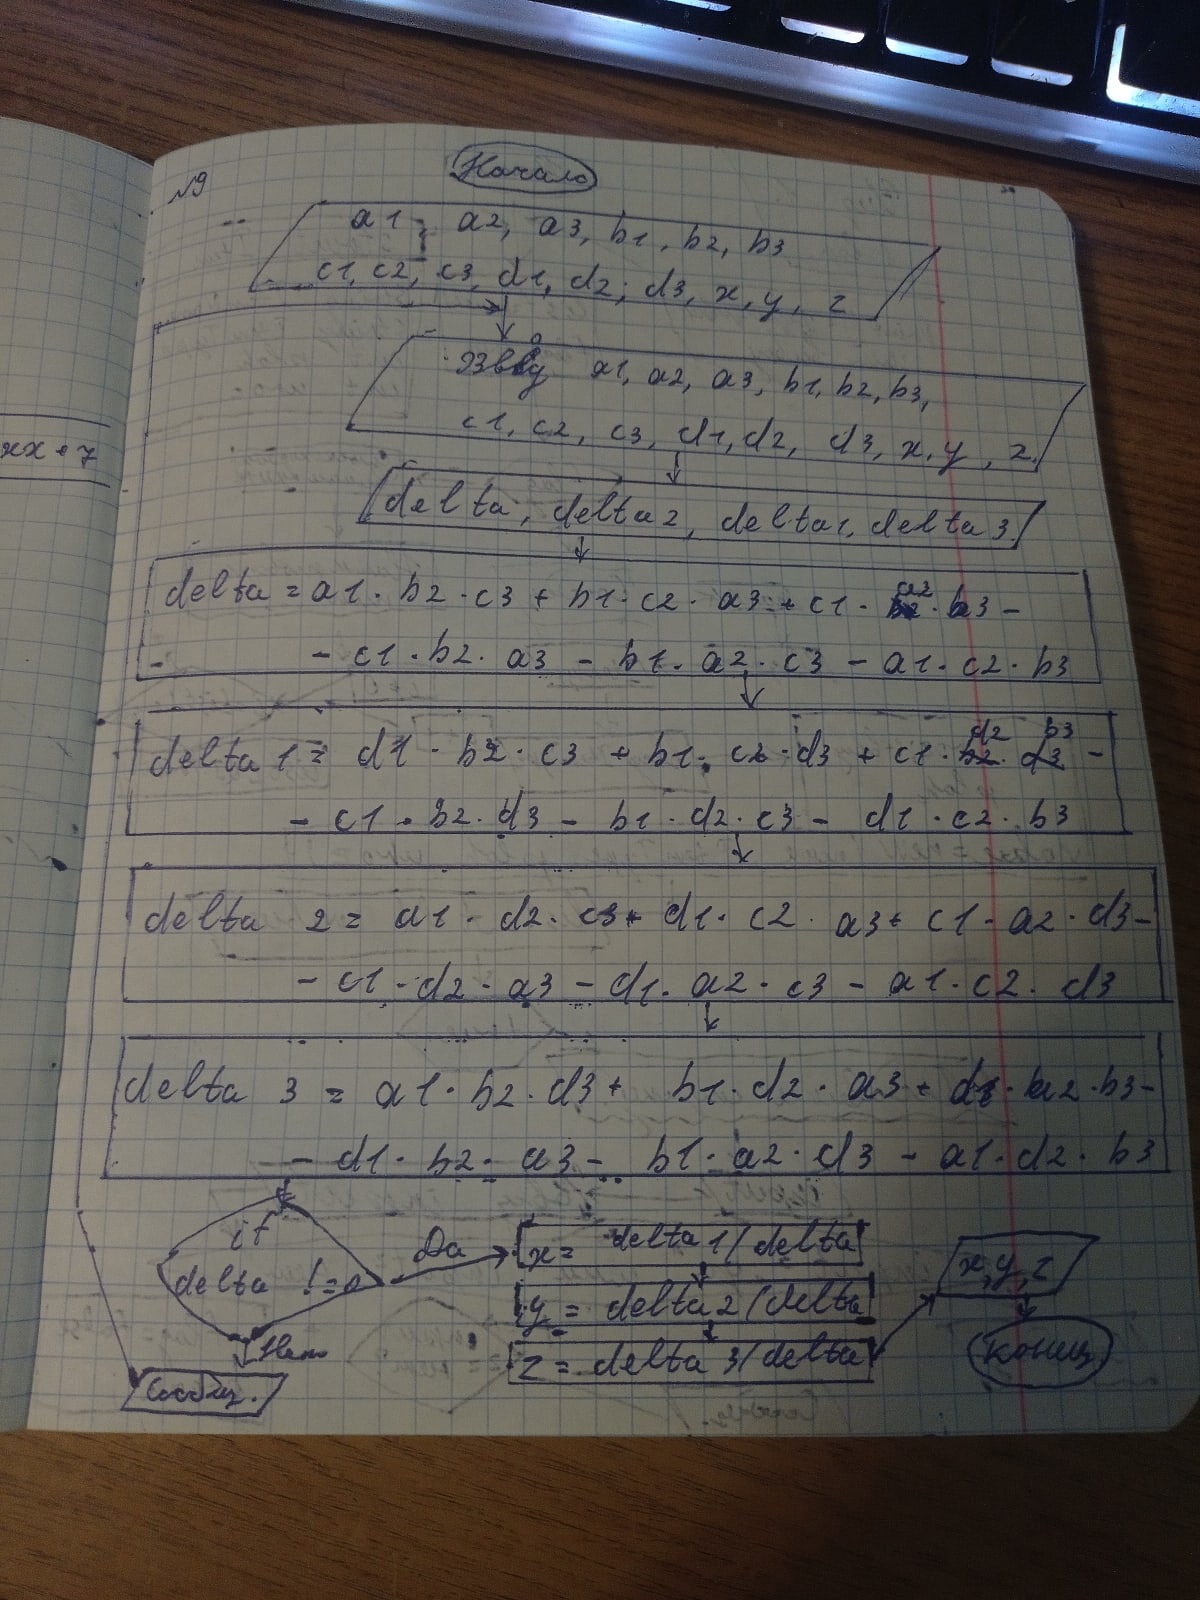 №9
Начало
a1, a2, a3, b1, b2, b3
c1, c2, c3, d1, d2, d3, x, y, z
a1, a2, a3, b1, b2, b3,
c1, c2, c3, d1, d2, d3, x, y, z.
delta, delta2, delta1, delta3.
delta = a1 · b2 · c3 + b1 · c2 · a3 + c1 · a2 · b3 -
- c1 · b2 · a3 - b1 · a2 · c3 - a1 · c2 · b3
delta 1 = d1 · b2 · c3 + b1 · c2 · d3 + c1 · d2 · b3 -
- c1 · b2 · d3 - b1 · d2 · c3 - d1 · c2 · b3
delta 2 = a1 · d2 · c3 + d1 · c2 · a3 + c1 · a2 · d3 -
- c1 · d2 · a3 - d1 · a2 · c3 - a1 · c2 · d3
delta 3 = a1 · b2 · d3 + b1 · d2 · a3 + d1 · a2 · b3 -
- d1 · b2 · a3 - b1 · a2 · d3 - a1 · d2 · b3
if
delta != 0
Да
x = delta 1 / delta
y = delta 2 / delta
z = delta 3 / delta
x, y, z
Конец
Нет
Сообщ.
xx + 7